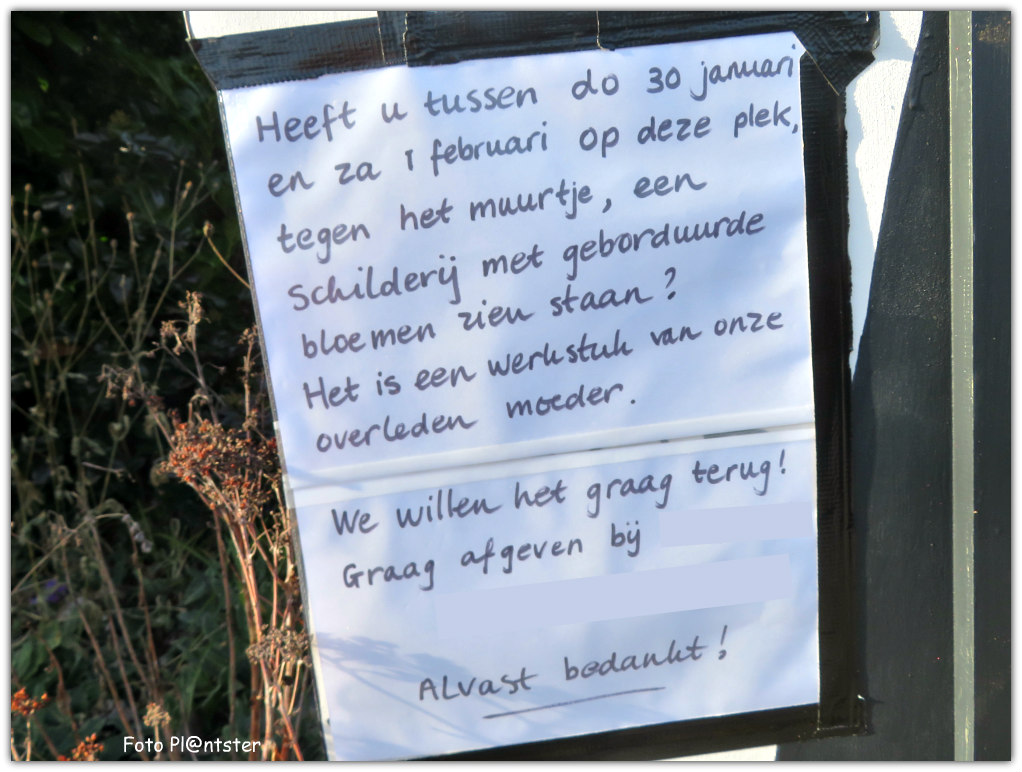 Heeft u tussen do 30 januari
en za 1 februari op deze plek,
tegen het muurtje, een
Schilderij met geborduurde
bloemen zien staan?
Het is een werkstuk van onze
overleden moeder.
We willen het graag terug!
Graag afgeven bij
ALvast bedankt!
Foto Pl@ntster